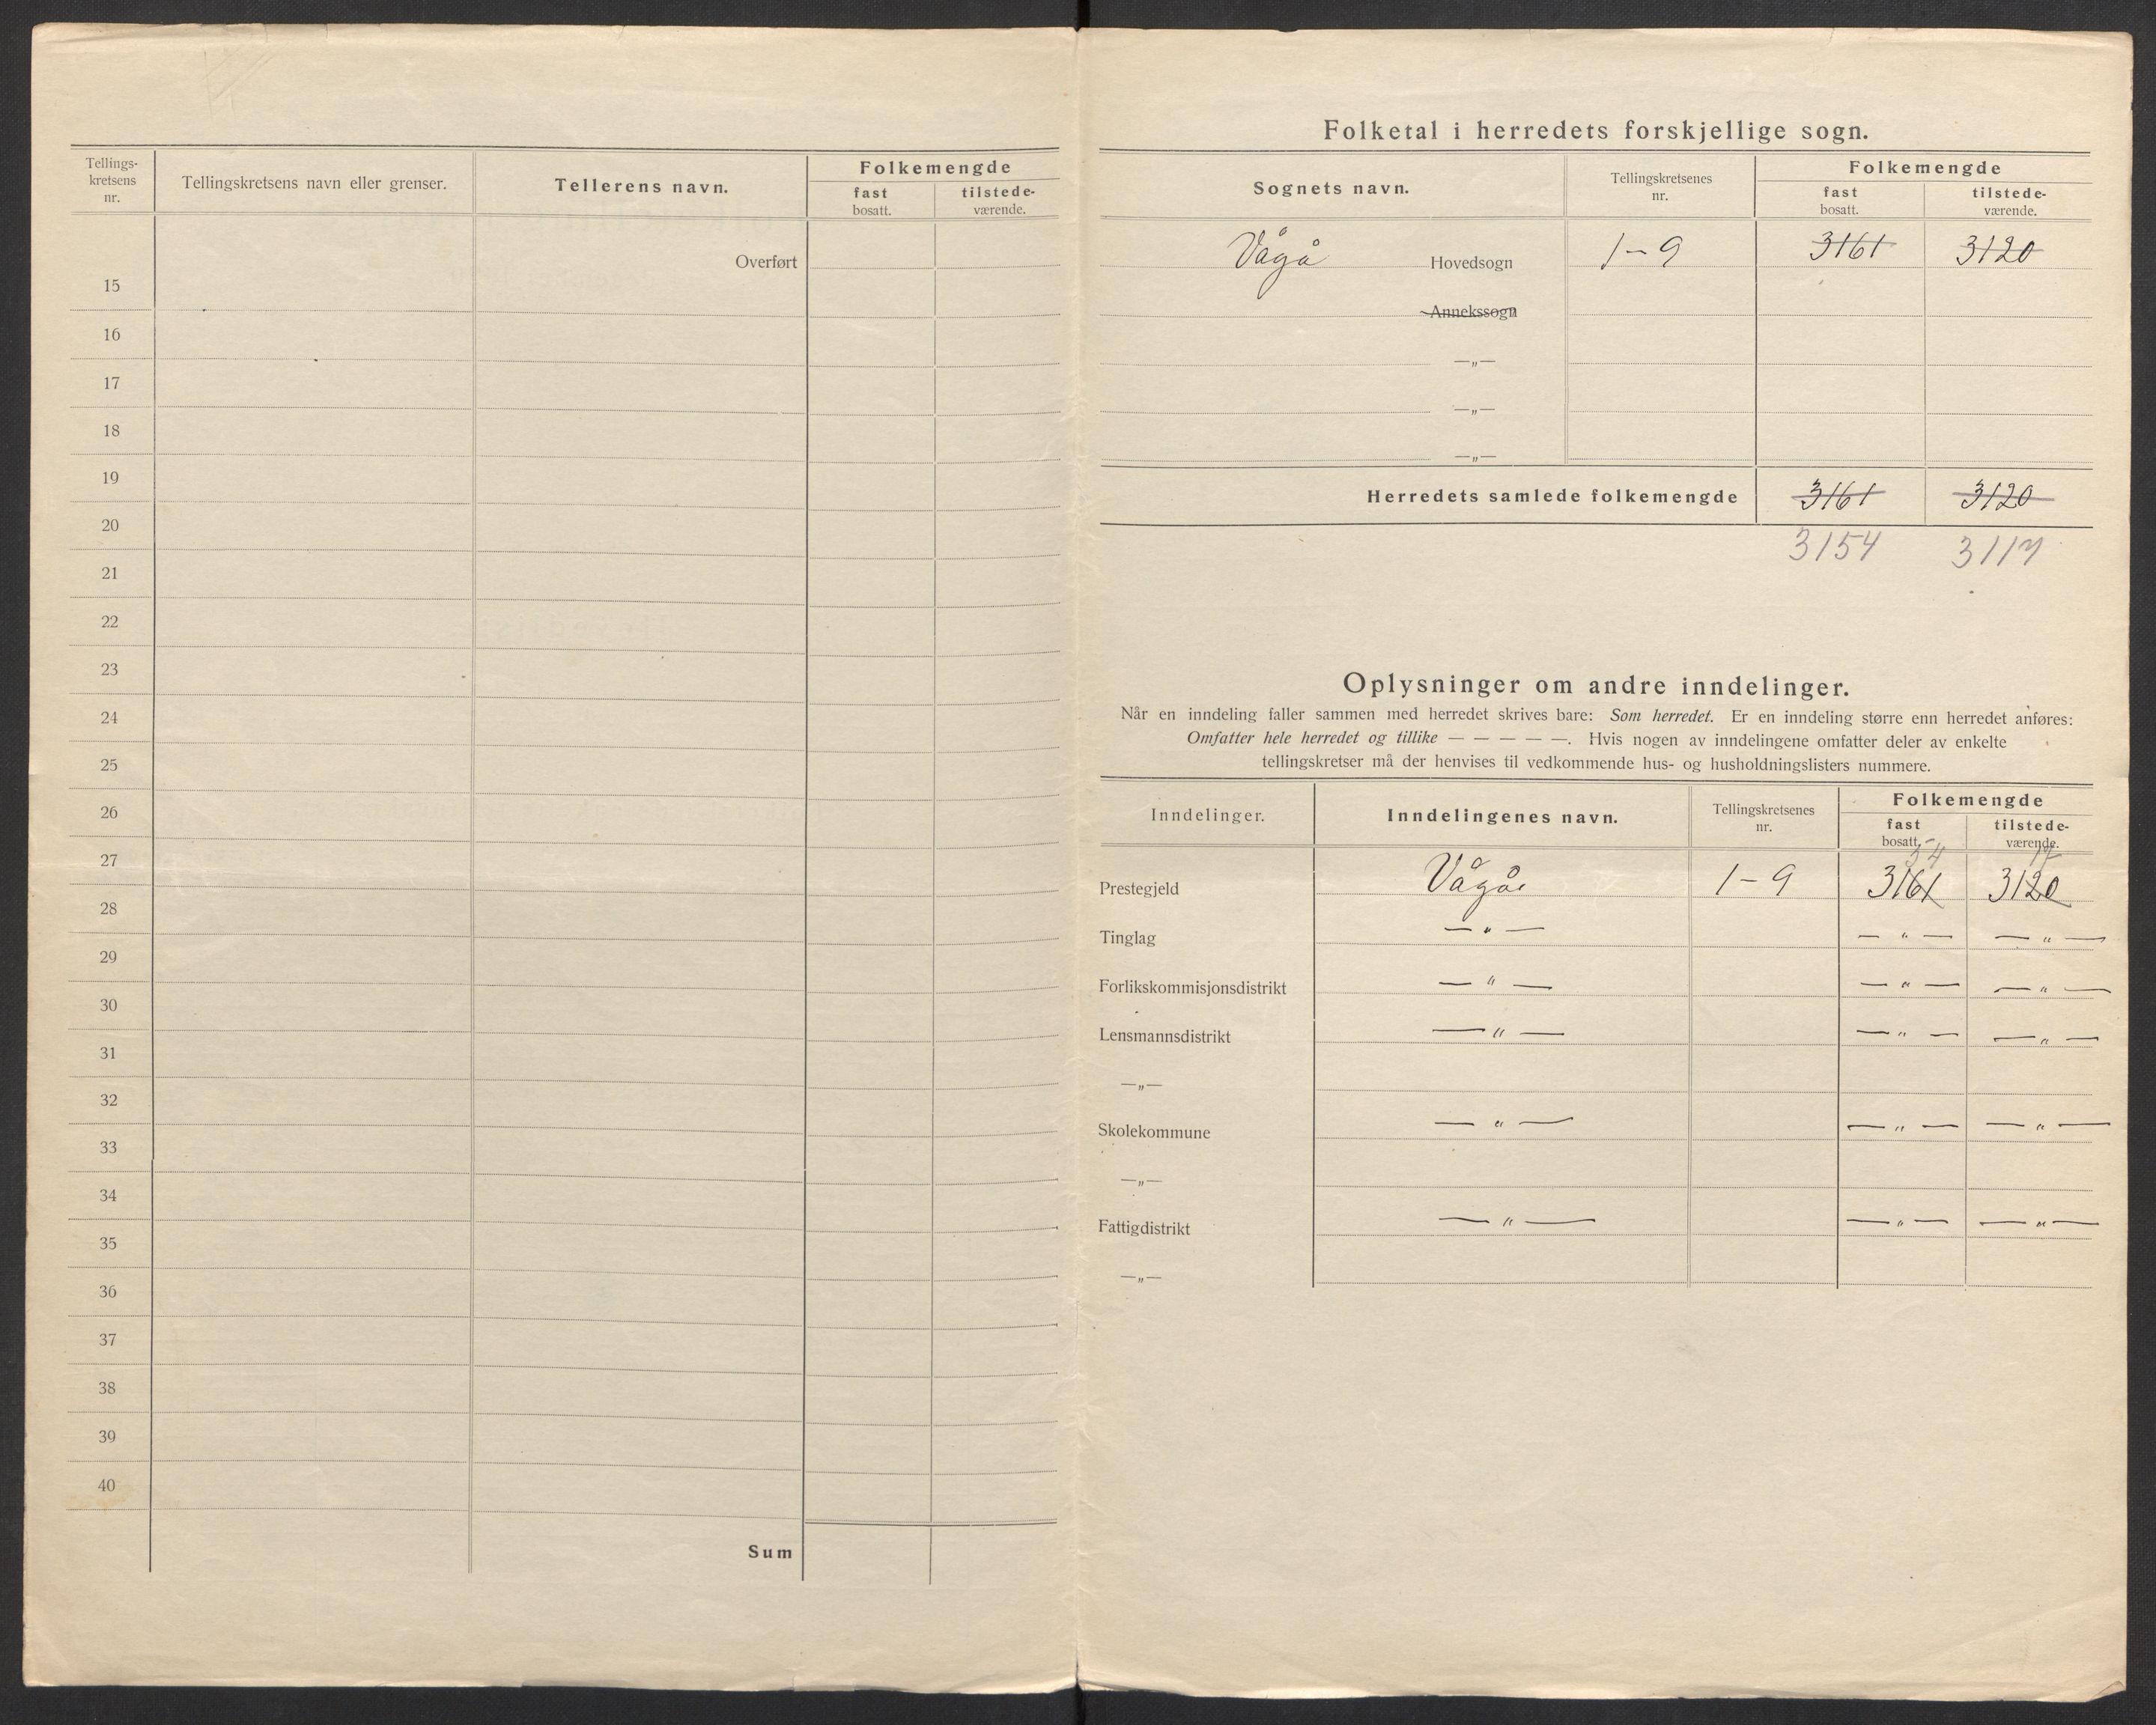 Tellings-
kretsens
nr.
Tellingskretsens navn eller grenser.
Tellerens navn.
Folkemengde
fast
bosatt.
tilstede-
værende.
Overført
15
16
17
18
19
20
21
22
23
24
25
26
27
28
29
30
31
32
33
34
35
36
37
38
39
40
Sum
Folketal i herredets forskjellige sogn.
Sognets navn.
Tellingskretsenes
nr.
Folkemengde
fast
bosatt.
tilstede-
værende.
Vågå Hovedsogn 1-9 3161 3120
Annekssogn
—„—
—„—
—„—
Herredets samlede folkemengde 3161 3120
3154 3117
Oplysninger om andre inndelinger.
Når en inndeling faller sammen med herredet skrives bare: Som herredet. Er en inndeling større enn herredet anføres:
Omfatter hele herredet og tillike — — — — —. Hvis nogen av inndelingene omfatter deler av enkelte
tellingskretser må der henvises til vedkommende hus- og husholdningslisters nummere.
Inndelinger.
Inndelingenes navn.
Tellingskretsenes
nr.
Folkemengde
fast
bosatt.
tilstede-
værende.
54 17
Prestegjeld Vågå 1-9 3161 3120
Tinglag —„— —„— —„—
Forlikskommisjonsdistrikt —„— —„— —„—
Lensmannsdistrikt —„— —„— —„—
—„—
Skolekommune —„— —„— —„—
—„—
Fattigdistrikt —„— —„— —„—
—„—